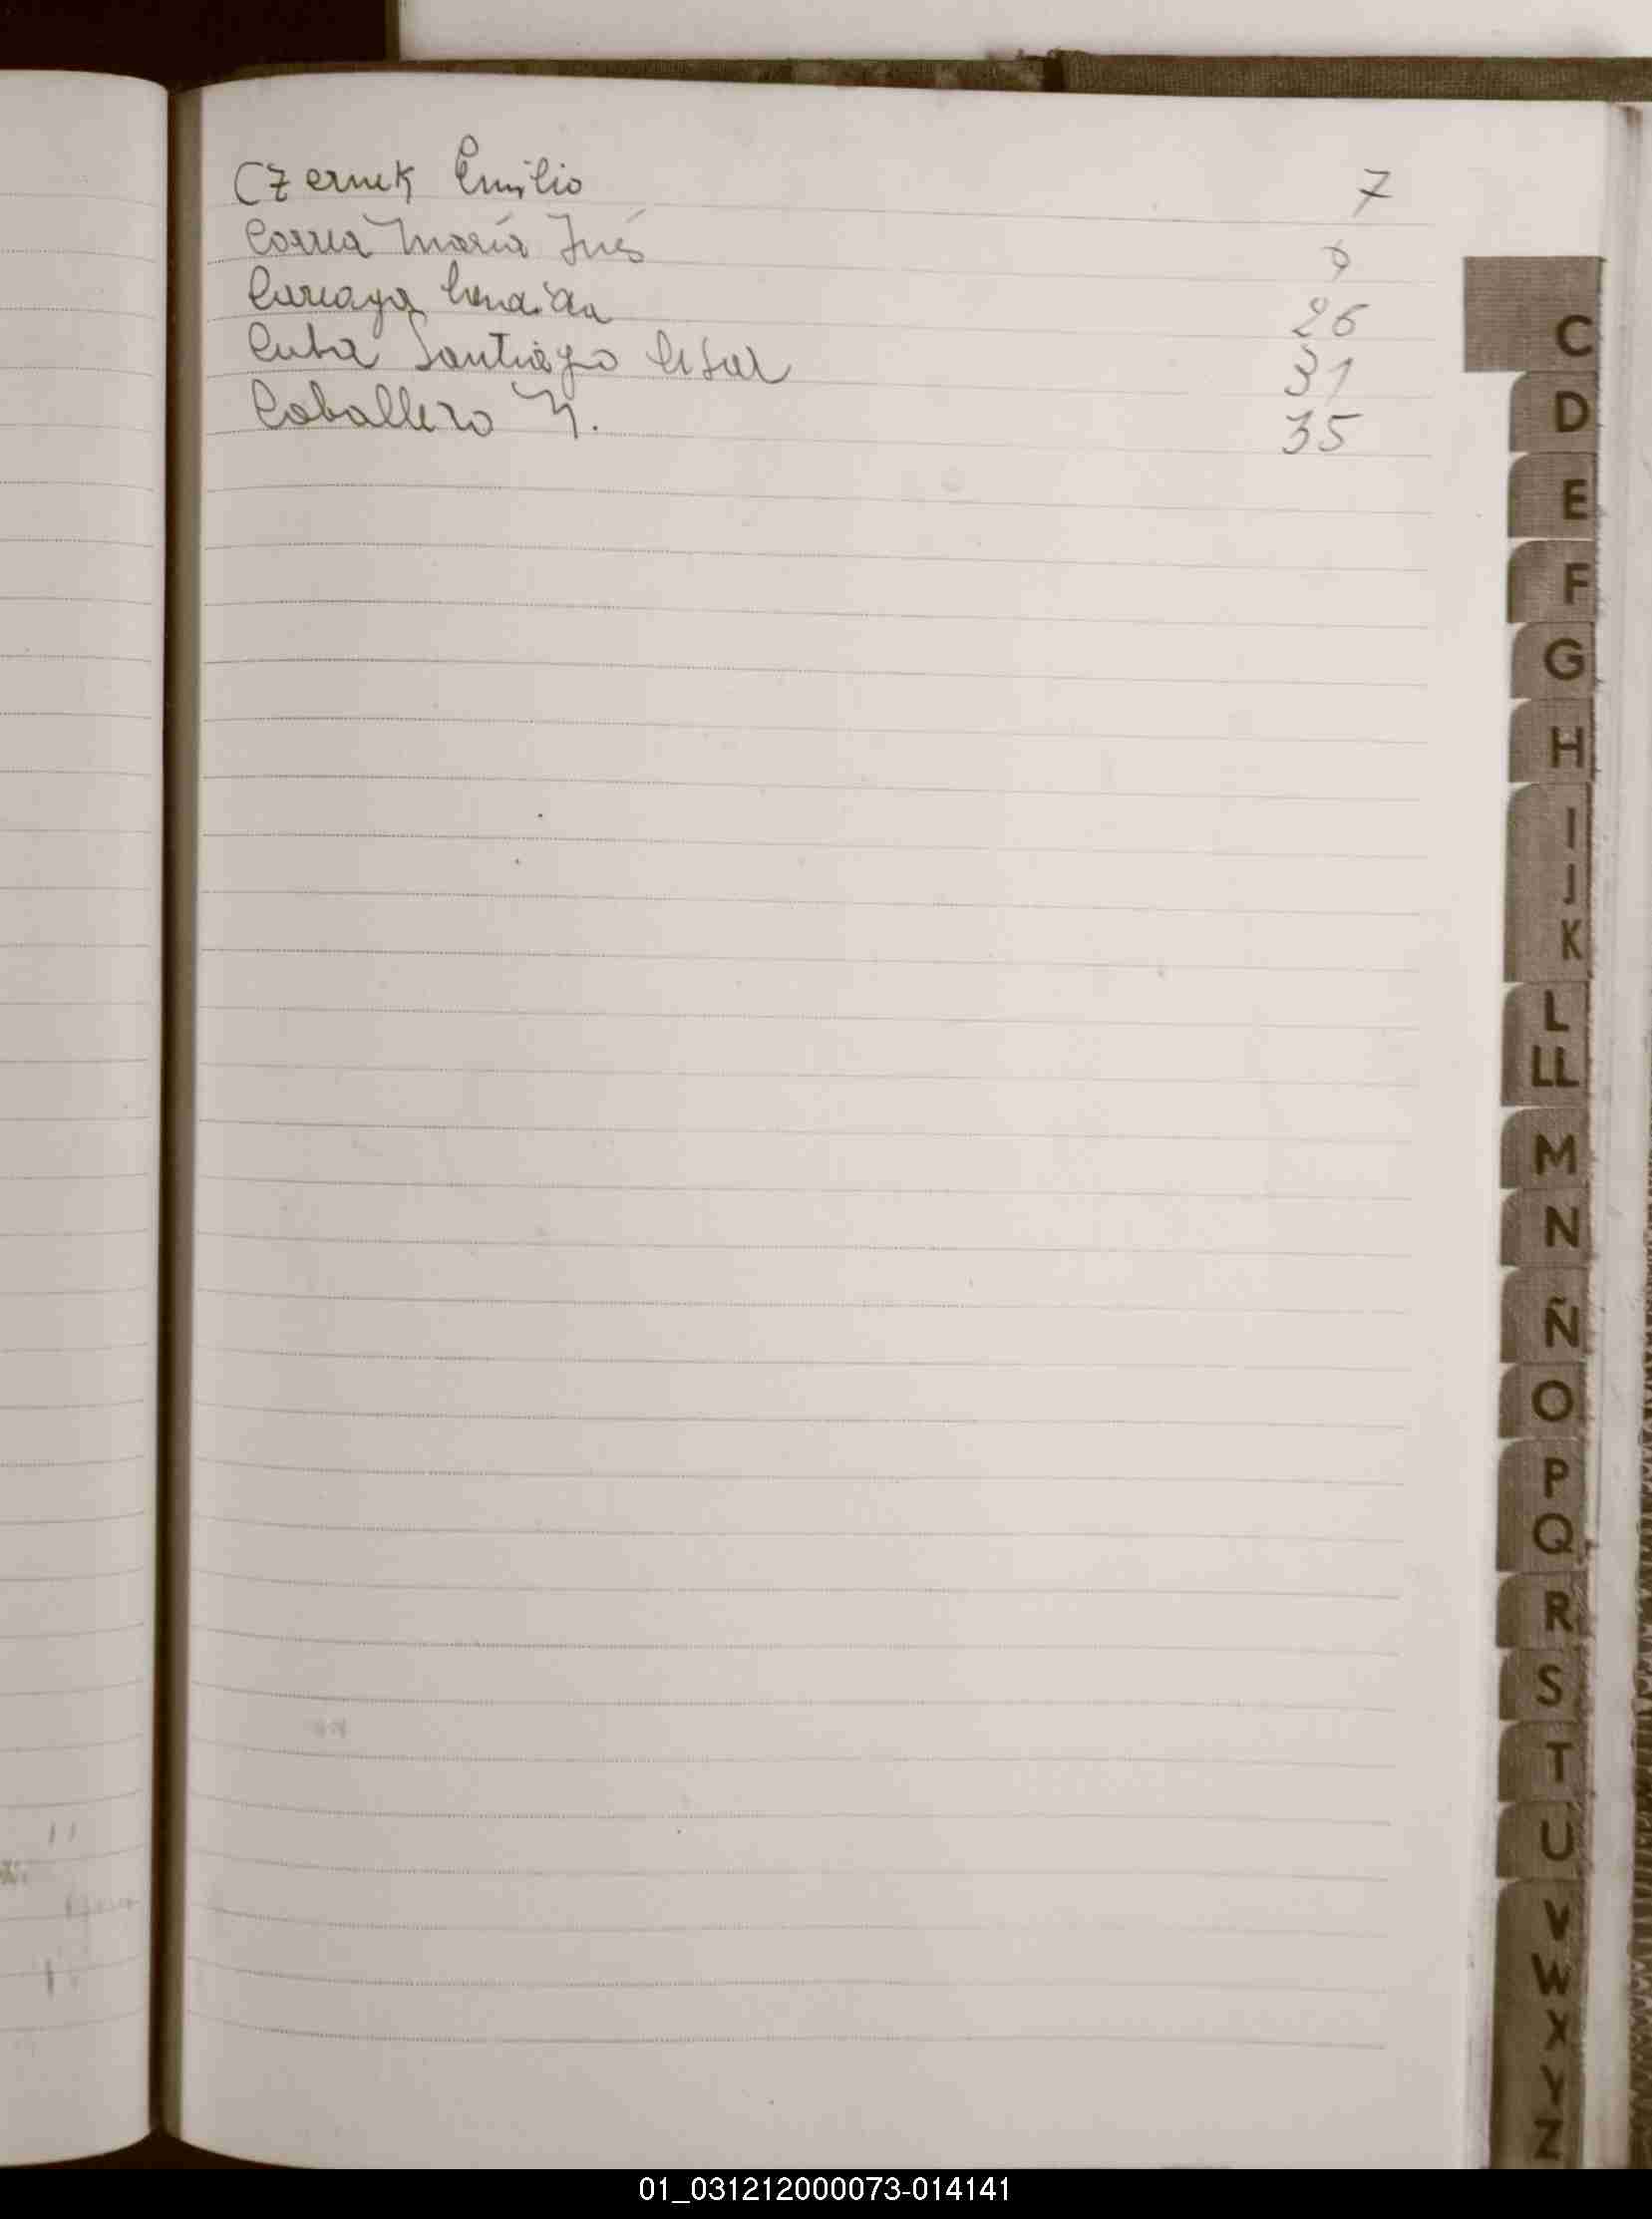 Czernek Emilio 7
Correa María Inés 9
Curcaya 26
Cuba Santiago César 31
Caballero N. 35
C
D
E
F
G
H
I
J
K
L
LL
M
N
Ñ
O
P
Q
R
S
T
U
V
W
X
Y
Z
01_031212000073-014141